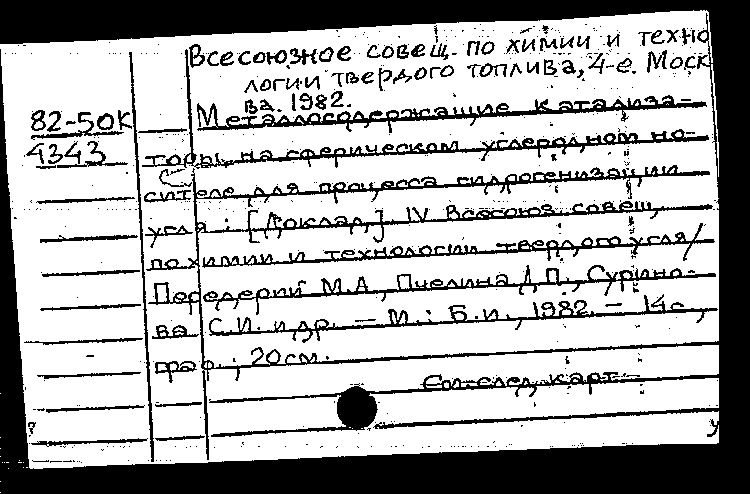 Всесоюзное совещ. по химии и техно
логии твердого топлива, 4-е. Моск
ва. 1982.
82-50К
4343
Металлосодержащие катализа-
торы на сферическом углеродном но-
сителе для процесса гидрогенизации
угля : [Доклад]. IV Всесоюз. совещ.
по химии и технологии твердого угля/
Передерий М.А., Пчелина Д.П., Сурино-
ва С.И. и др. — М.: Б.и., 1982. — 14 с.,
граф.; 20 см.
См. след. карт.
у